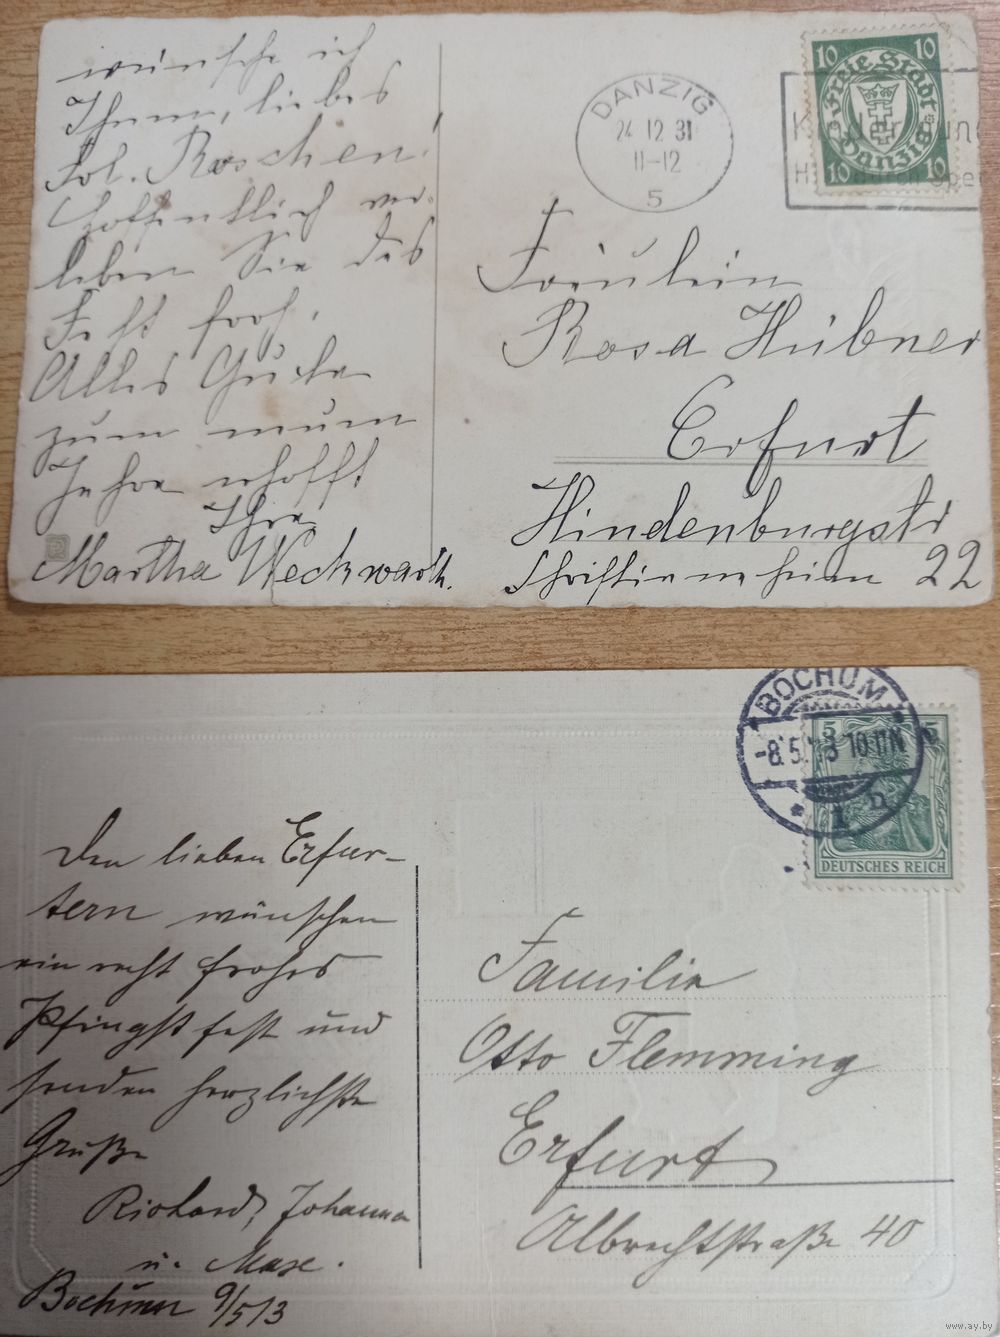 wünsche ich
Ihnen, liebes
Frl. Roschen!
Hoffentlich ver-
leben Sie das
Fest froh.
Alles Gute
zum neuen
Jahre erhofft
Ihre
Martha Weckwarth.
DANZIG
24 12 31
11-12
5
10 10
Freie Stadt
Danzig
10 10
Fräulein
Rosa Hübner
Erfurt
Hindenburgstr
22
Den lieben Erfur-
tern wünschen
ein recht frohes
Pfingstfest und
senden herzlichste
Grüße
Richard, Johanna
u. Maxe.
Bochum 9/5/13
BOCHUM
-8.5.13 10-11N
* 1 n
5 5
DEUTSCHES REICH
Familie
Otto Flemming
Erfurt
Albrechtstraße 40
www.ay.by